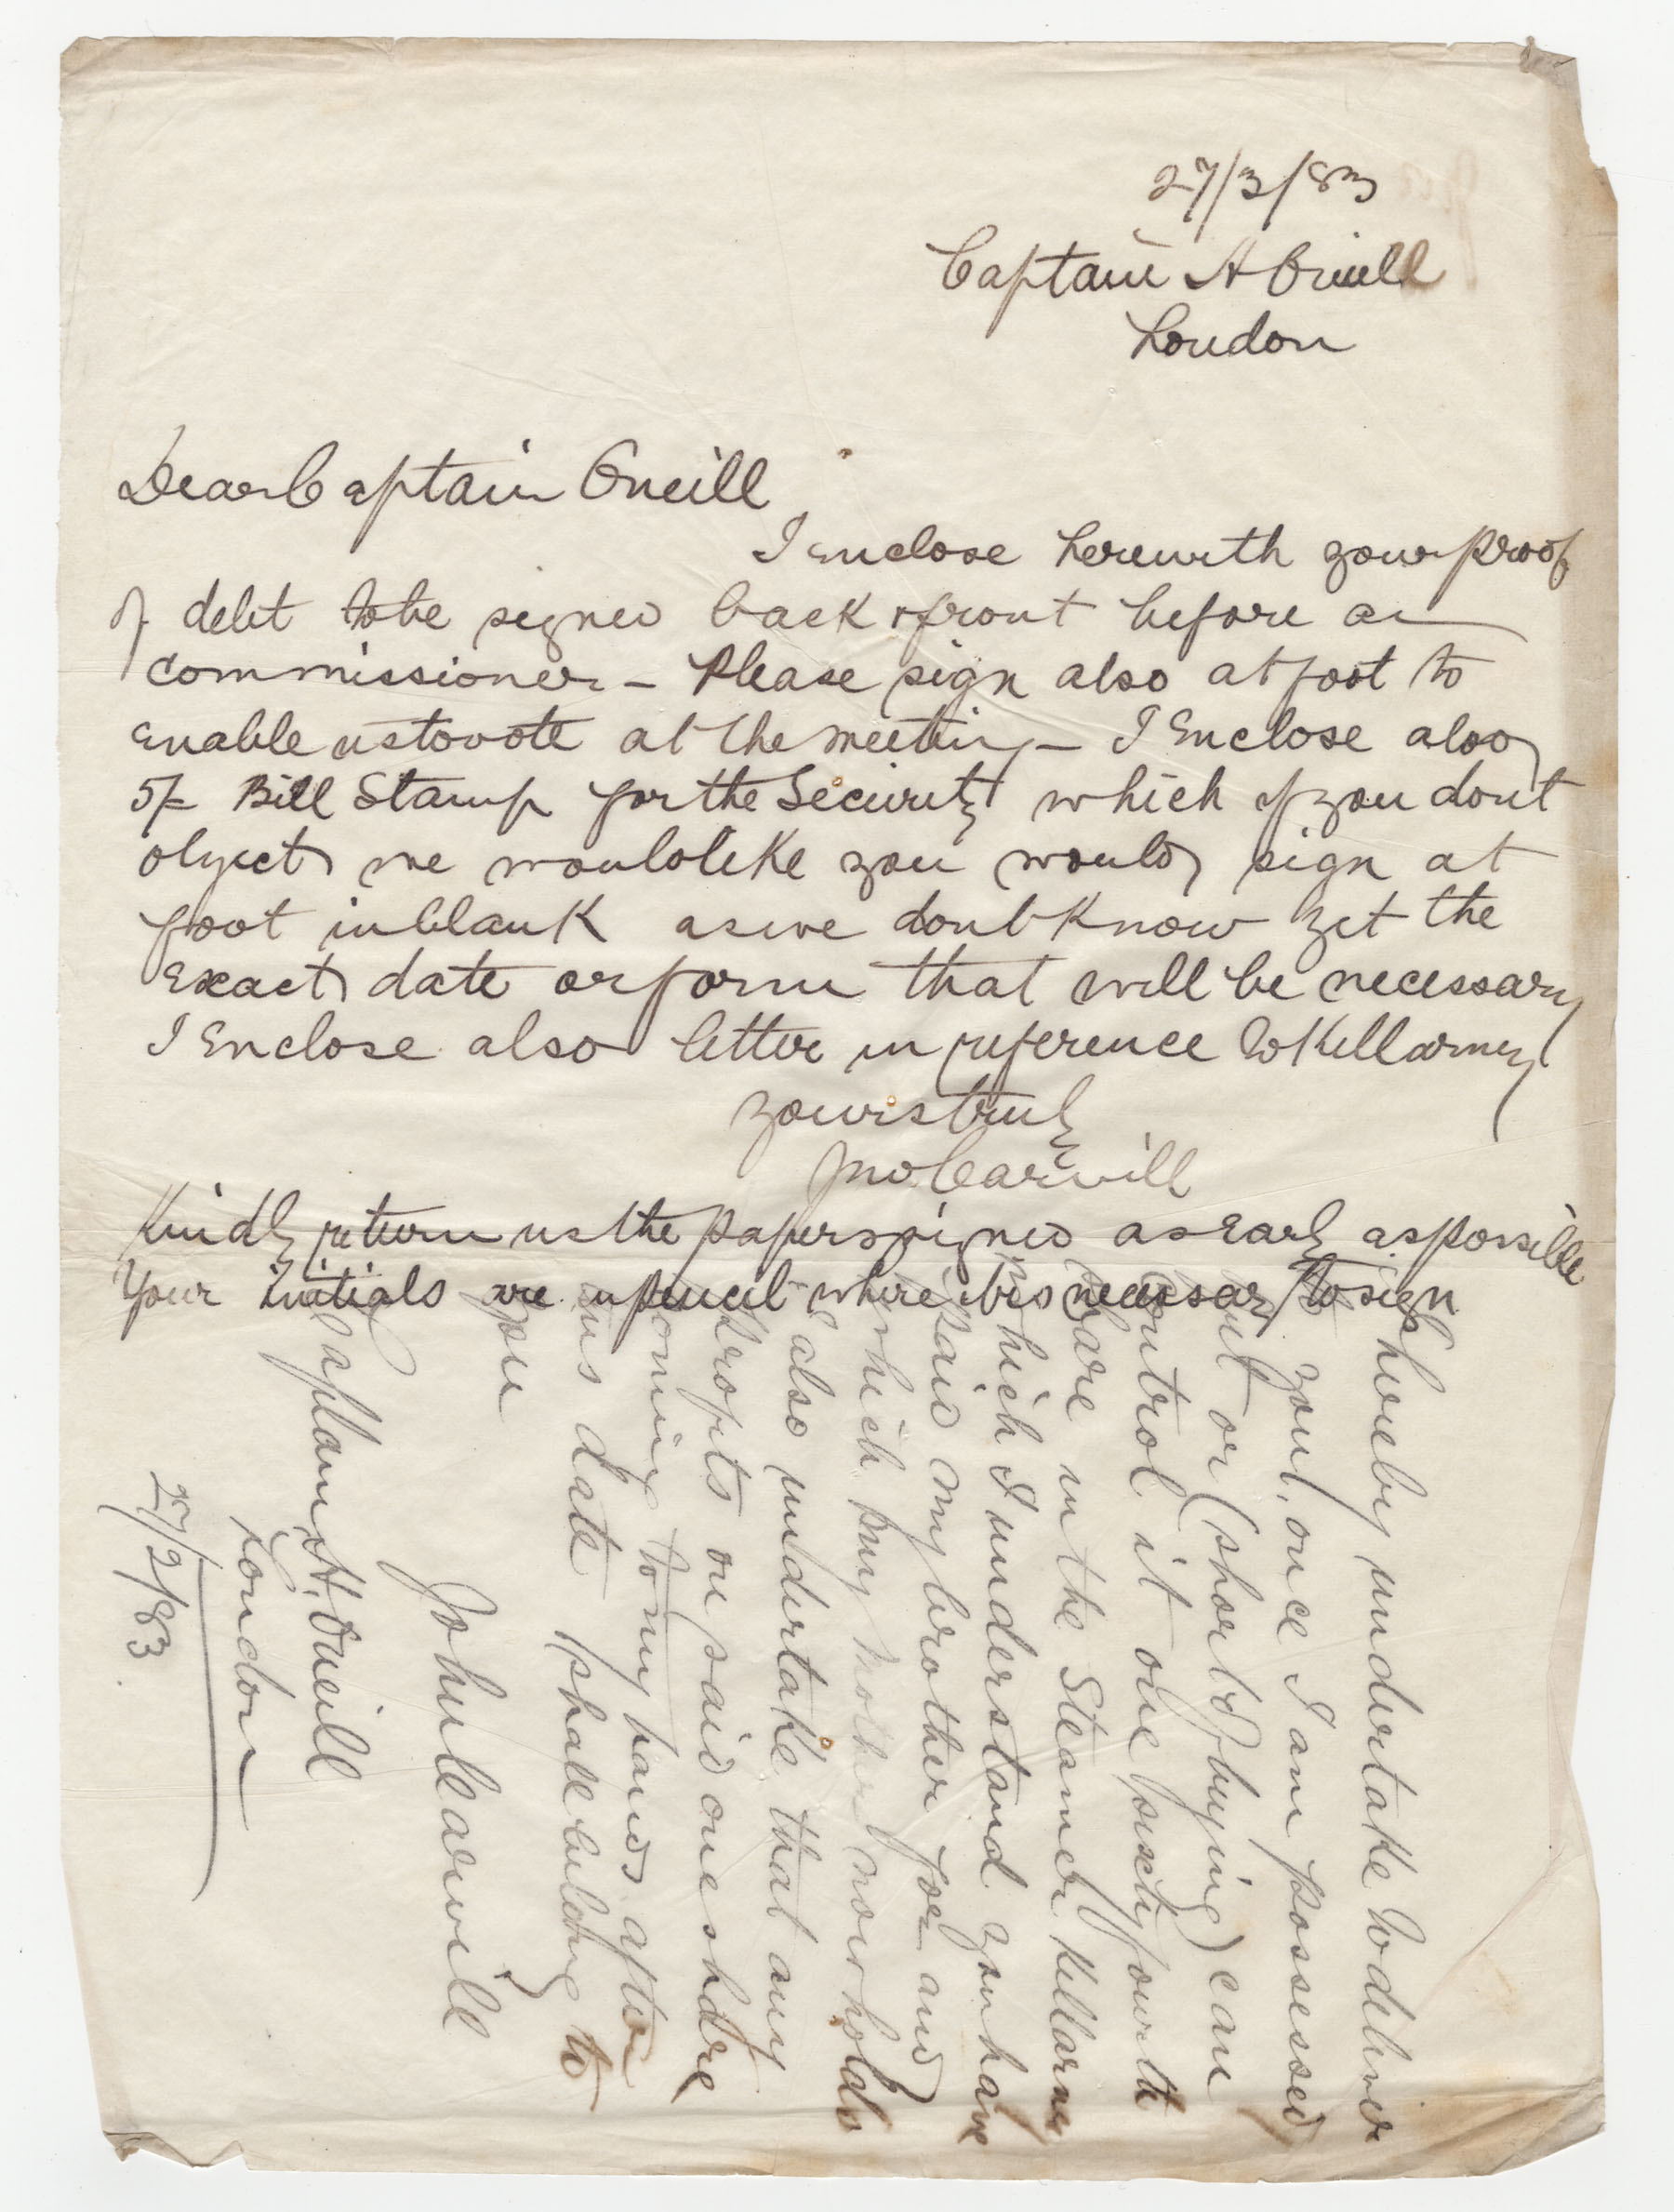 27/3/83
Captain H Oneill
London
Dear Captain Oneill
I enclose herewith your proof
of debt to be signed back & front before a
commissioner – Please sign also at foot to
enable us to vote at the meeting – I Enclose also
5/- Bill Stamp for the Security which if you dont
object we would like you would sign at
foot in blank as we dont know yet the
exact date or form that will be necessary
I Enclose also letter in reference to Killarney
yours truly
Jno Carvill
Kindly return us the papers signed as early as possible
Your initials are in pencil where its necessary to sign
I hereby undertake to deliver
to you, once I am possessed
but or (short of buying) can
control it one Sixty fourth
Share in the Steamer Killarney
which I understand you have
paid my brother for and
which my Mother now holds
I also undertake that any
profits on said one share
coming to my hands after
this date shall belong to
you
John Carvill
Captain H. Oneill
London
27/2/83